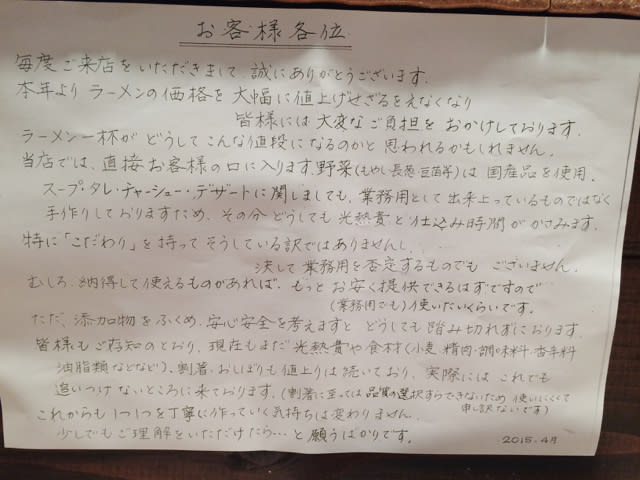 お客様各位
毎度ご来店をいただきまして、誠にありがとうございます。
本年より ラーメンの価格を 大幅に値上げせざるをえなくなり
皆様には 大変なご負担を おかけしております。
ラーメン一杯が どうして こんなり値段に なるのかと 思われるかもしれません。
当店では、直接お客様の口に入ります、野菜(もやし・長葱・豆苗等)は 国産品を使用。
スープ・タレ・チャーシュー・デザートに関しましても、業務用として出来上っているものではなく
手作りしておりますため、その分どうしても 光熱費と仕込み時間が かさみます。
特に「こだわり」を持って そうしている訳ではありませんし、
決して 業務用を否定するものでも ございません。
むしろ、納得して使えるものがあれば、もっと お安く提供できるはずですので
(業務用でも)使いたいくらいです。
ただ、添加物をふくめ、安心安全を考えますと どうしても踏み切れずにおります。
皆様もご存知のとおり、現在もまだ 光熱費や食材(小麦・精肉・調味料・香辛料
油脂類などなど)、割箸、おしぼりも 値上りは続いており、実際には これでも
追いつけないところに来ております。(割箸に至っては 品質の選択すらできないため 使いにくくて
申し訳ないです)
これからも 1つ1つを丁寧に作っていく気持ちは変わりません。
少しでもご理解をいただけたら…と 願うばかりです。
2015.4月